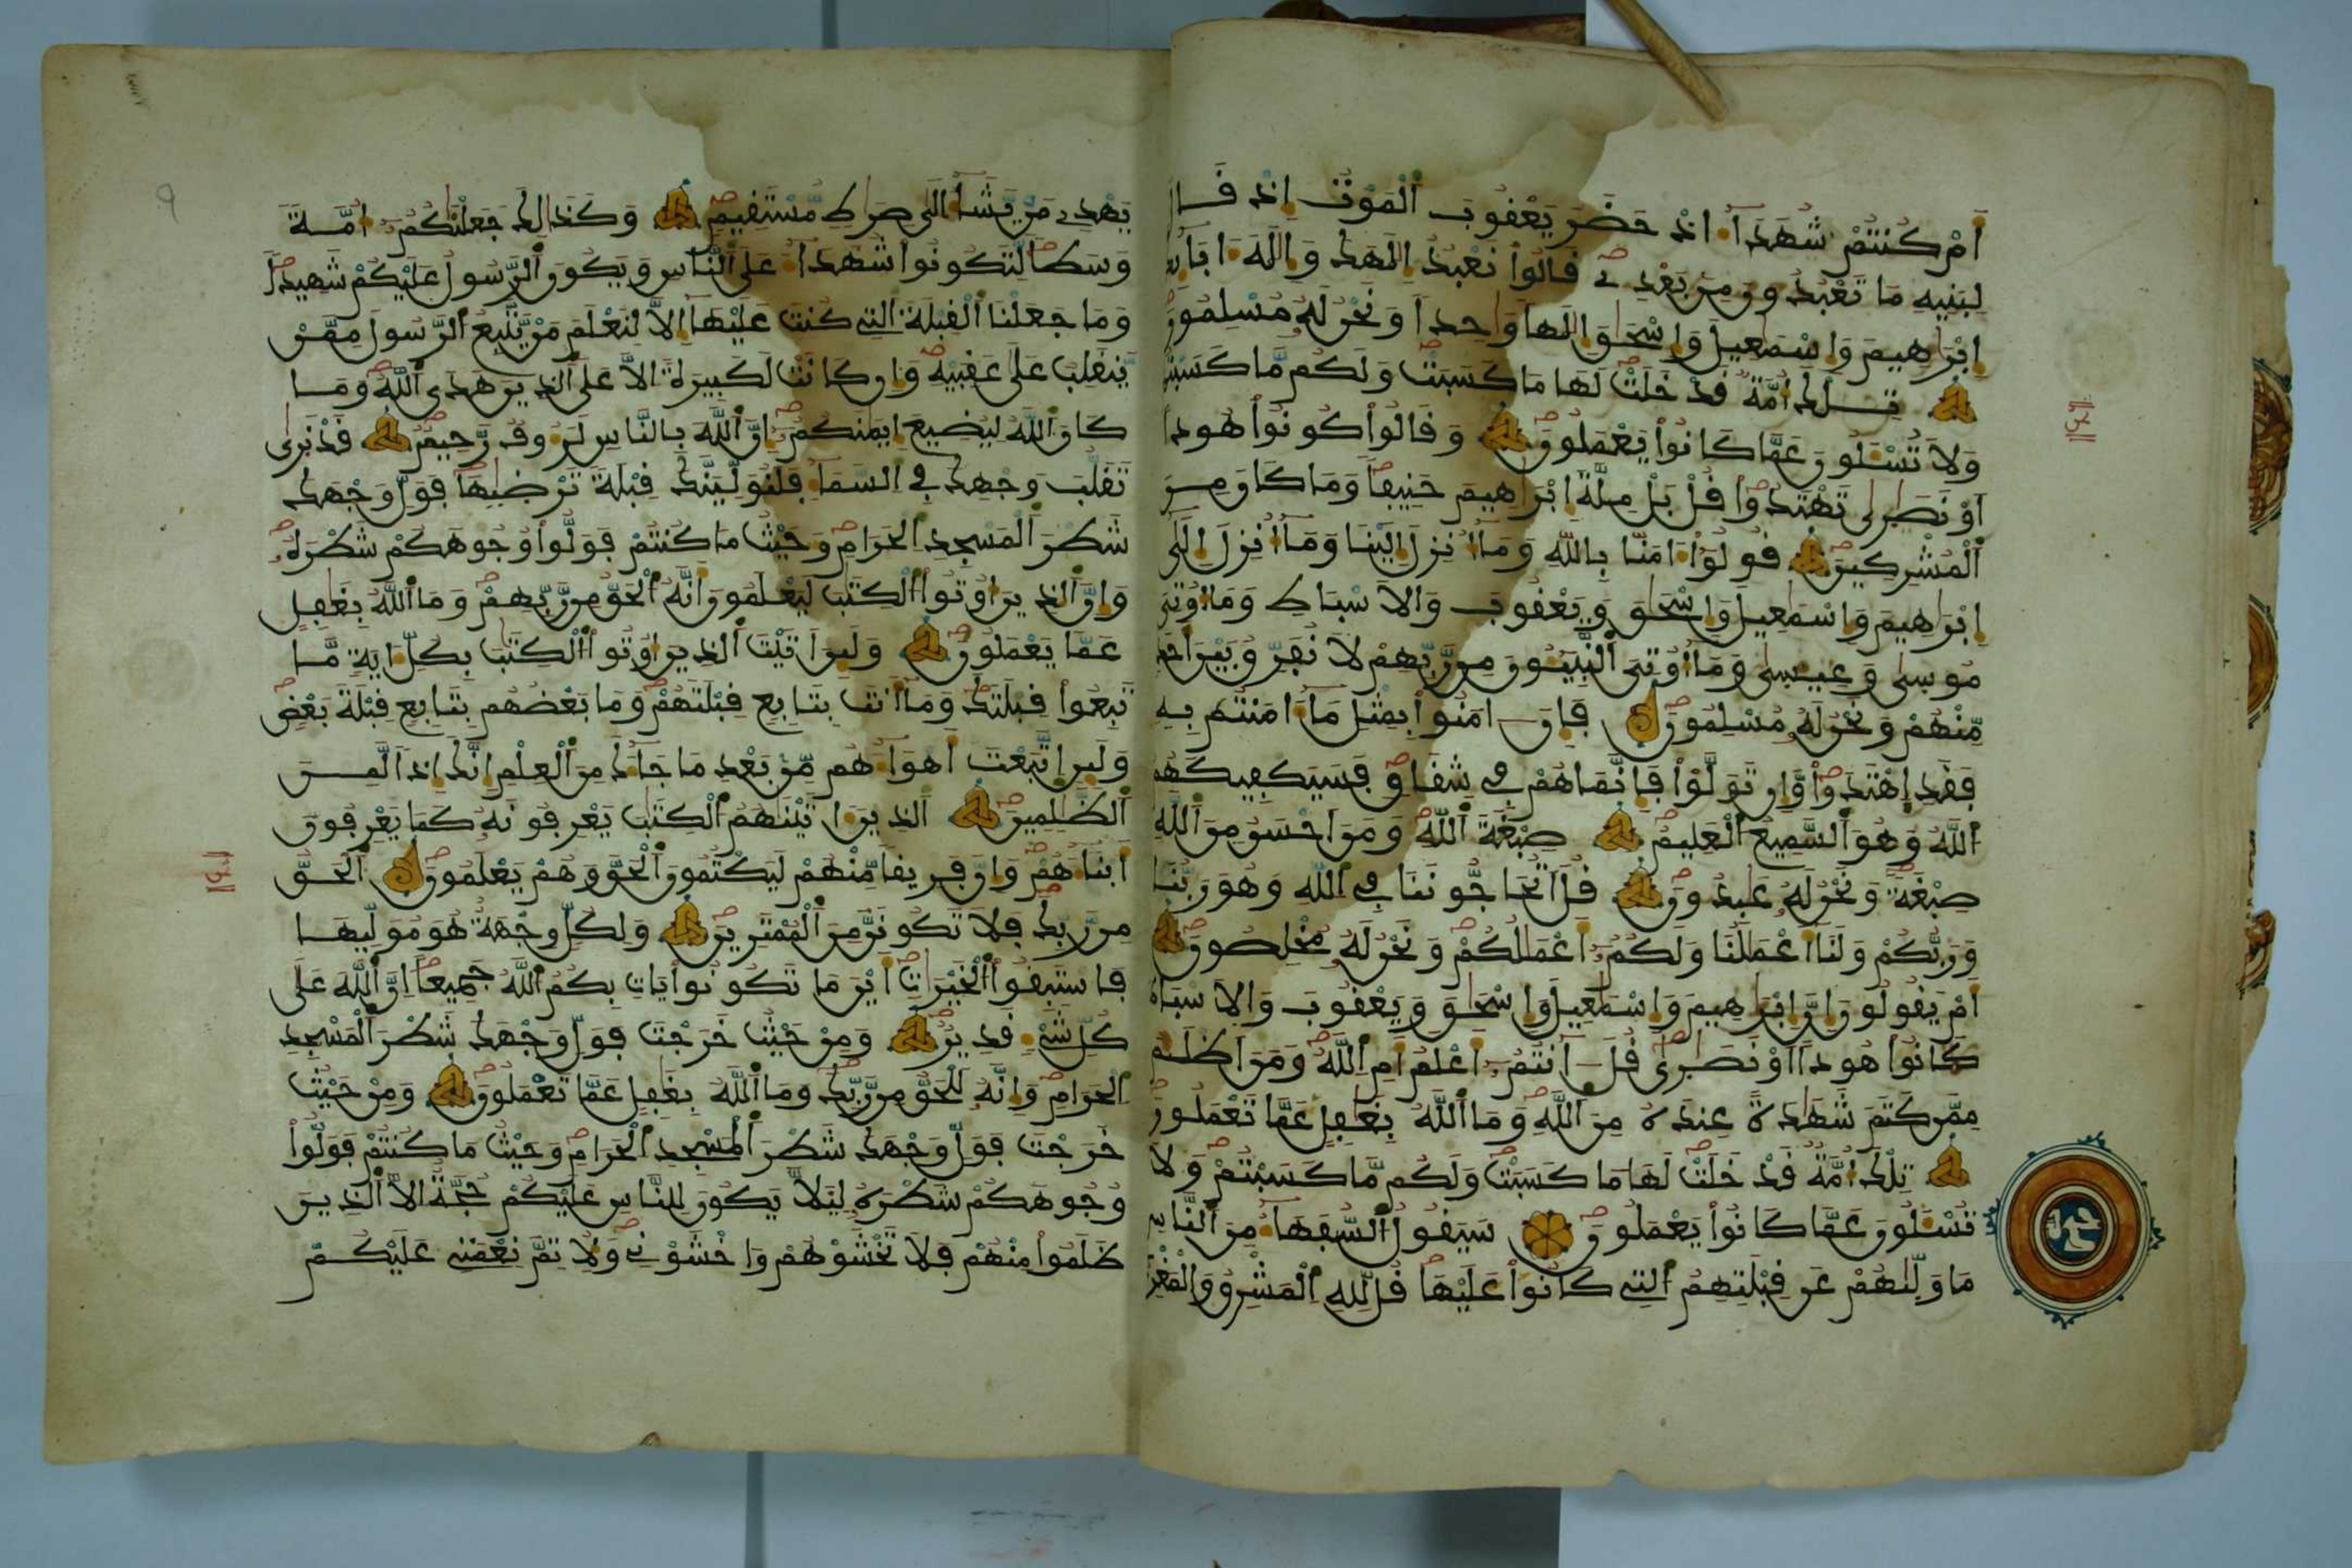 أَمْ كُنتُمْ شُهَدَآءَ اذْ حَضَرَ يَعْقُوبَ ٱلْمَوْتُ إِذْ قَالَ
لِبَنِيهِ مَا تَعْبُدُونَ مِنۢ بَعْدِے قَالُوا۟ نَعْبُدُ إِلَٰهَكَ وَإِلَٰهَ ءَابَآئِكَ
إِبْرَٰهِيمَ وَإِسْمَٰعِيلَ وَإِسْحَٰقَ إِلَٰهاً وَٰحِداً وَنَحْنُ لَهُۥ مُسْلِمُونَ
تِلْكَ أُمَّةٌ قَدْ خَلَتْ لَهَا مَا كَسَبَتْ وَلَكُم مَّا كَسَبْتُمْ
وَلَا تُسْـَٔلُونَ عَمَّا كَانُوا۟ يَعْمَلُونَ وَقَالُوا۟ كُونُوا۟ هُوداً
أَوْ نَصَٰرَىٰ تَهْتَدُوا۟ قُلْ بَلْ مِلَّةَ إِبْرَٰهِيمَ حَنِيفاً وَمَا كَانَ مِنَ
ٱلْمُشْرِكِينَ قُولُوٓا۟ ءَامَنَّا بِاللَّهِ وَمَآ أُنزِلَ إِلَيْنَا وَمَآ أُنزِلَ إِلَىٰٓ
إِبْرَٰهِيمَ وَإِسْمَٰعِيلَ وَإِسْحَٰقَ وَيَعْقُوبَ وَالَاسْبَاطِ وَمَآ أُوتِيَ
مُوسَىٰ وَعِيسَىٰ وَمَآ أُوتِيَ ٱلنَّبِيـُٔونَ مِن رَّبِّهِمْ لَا نُفَرِّقُ بَيْنَ أَحَدٍ
مِّنْهُمْ وَنَحْنُ لَهُۥ مُسْلِمُونَ فَإِنَ ـامَنُوا۟ بِمِثْلِ مَآ ءَامَنتُم بِهِ
فَقَدِ اِهْتَدَوا۟ وَّإِن تَوَلَّوْا۟ فَإِنَّمَا هُمْ فِى شِقَاقٍ فَسَيَكْفِيكَهُمُ
ٱللَّهُ وَهُوَ ٱلسَّمِيعُ ٱلْعَلِيمُ صِبْغَةَ ٱللَّهِ وَمَنَ أَحْسَنُ مِنَ ٱللَّهِ
صِبْغَةً وَنَحْنُ لَهُۥ عَٰبِدُونَ قُلَ أَتُحَآجُّونَنَا فِى ٱللَّهِ وَهُوَ رَبُّنَا
وَرَبُّكُمْ وَلَنَآ أَعْمَٰلُنَا وَلَكُمُۥٓ أَعْمَٰلُكُمْ وَنَحْنُ لَهُۥ مُخْلِصُونَ
أَمْ يَقُولُونَ إِنَّ إِبْرَٰهِيمَ وَإِسْمَٰعِيلَ وَإِسْحَٰقَ وَيَعْقُوبَ وَالَاسْبَاطَ
كَانُوا۟ هُوداً أَوْ نَصَٰرَىٰ قُلَ ـآنتُمُۥٓ أَعْلَمُ أَمِ ٱللَّهُ وَمَنَ أَظْلَمُ
مِمَّن كَتَمَ شَهَٰدَةً عِندَهُۥ مِنَ ٱللَّهِ وَمَا ٱللَّهُ بِغَٰفِلٍ عَمَّا تَعْمَلُونَ
تِلْكَ أُمَّةٌ قَدْ خَلَتْ لَهَا مَا كَسَبَتْ وَلَكُم مَّا كَسَبْتُمْ وَلَا
تُسْـَٔلُونَ عَمَّا كَانُوا۟ يَعْمَلُونَ سَيَقُولُ ٱلسُّفَهَآءُ مِنَ ٱلنَّاسِ
مَا وَلَّىٰهُمْ عَن قِبْلَتِهِمُ ٱلتِى كَانُوا۟ عَلَيْهَا قُل لِّلَّهِ ٱلْمَشْرِقُ وَالْمَغْرِبُ
يَهْدِے مَنْ يَّشَآءُ إِلَىٰ صِرَٰطٍ مُّسْتَقِيمٍ وَكَذَٰلِكَ جَعَلْنَٰكُمُۥٓ أُمَّةً
وَسَطاً لِّتَكُونُوا۟ شُهَدَآءَ عَلَى ٱلنَّاسِ وَيَكُونَ ٱلرَّسُولُ عَلَيْكُمْ شَهِيداً
وَمَا جَعَلْنَا ٱلْقِبْلَةَ ٱلتِى كُنتَ عَلَيْهَآ إِلَّا لِنَعْلَمَ مَنْ يَّتَّبِعُ ٱلرَّسُولَ مِمَّنْ
يَّنقَلِبُ عَلَىٰ عَقِبَيْهِ وَإِن كَانَتْ لَكَبِيرَةً إِلَّا عَلَى ٱلذِينَ هَدَى ٱللَّهُ وَمَا
كَانَ ٱللَّهُ لِيُضِيعَ إِيمَٰنَكُمُۥٓ إِنَّ ٱللَّهَ بِالنَّاسِ لَرَءُوفٌ رَّحِيمٌ قَدْ نَرَىٰ
تَقَلُّبَ وَجْهِكَ فِى ٱلسَّمَآءِ فَلَنُوَلِّيَنَّكَ قِبْلَةً تَرْضَىٰهَا فَوَلِّ وَجْهَكَ
شَطْرَ ٱلْمَسْجِدِ ٱلْحَرَامِ وَحَيْثُ مَا كُنتُمْ فَوَلُّوا۟ وُجُوهَكُمْ شَطْرَهُۥ
وَإِنَّ ٱلذِينَ أُوتُوا۟ ٱلْكِتَٰبَ لَيَعْلَمُونَ أَنَّهُ ٱلْحَقُّ مِن رَّبِّهِمْ وَمَا ٱللَّهُ بِغَٰفِلٍ
عَمَّا يَعْمَلُونَ وَلَئِنَ أَتَيْتَ ٱلذِينَ أُوتُوا۟ ٱلْكِتَٰبَ بِكُلِّ ءَايَةٍ مَّا
تَبِعُوا۟ قِبْلَتَكَ وَمَآ أَنتَ بِتَابِعٍ قِبْلَتَهُمْ وَمَا بَعْضُهُم بِتَابِعٍ قِبْلَةَ بَعْضٍ
وَلَئِنِ اِتَّبَعْتَ أَهْوَآءَهُم مِّنۢ بَعْدِ مَا جَآءَكَ مِنَ ٱلْعِلْمِ إِنَّكَ إِذاً لَّمِنَ
ٱلظَّٰلِمِينَ ٱلذِينَ ءَاتَيْنَٰهُمُ ٱلْكِتَٰبَ يَعْرِفُونَهُۥ كَمَا يَعْرِفُونَ
أَبْنَآءَهُمْ وَإِنَّ فَرِيقاً مِّنْهُمْ لَيَكْتُمُونَ ٱلْحَقَّ وَهُمْ يَعْلَمُونَ ٱلْحَقُّ
مِن رَّبِّكَ فَلَا تَكُونَنَّ مِنَ ٱلْمُمْتَرِينَ وَلِكُلٍّ وِجْهَةٌ هُوَ مُوَلِّيهَا
فَاسْتَبِقُوا۟ ٱلْخَيْرَٰتِ أَيْنَ مَا تَكُونُوا۟ يَاتِ بِكُمُ ٱللَّهُ جَمِيعاً إِنَّ ٱللَّهَ عَلَىٰ
كُلِّ شَىْءٍ قَدِيرٌ وَمِنْ حَيْثُ خَرَجْتَ فَوَلِّ وَجْهَكَ شَطْرَ ٱلْمَسْجِدِ
ٱلْحَرَامِ وَإِنَّهُۥ لَلْحَقُّ مِن رَّبِّكَ وَمَا ٱللَّهُ بِغَٰفِلٍ عَمَّا تَعْمَلُونَ وَمِنْ حَيْثُ
خَرَجْتَ فَوَلِّ وَجْهَكَ شَطْرَ ٱلْمَسْجِدِ ٱلْحَرَامِ وَحَيْثُ مَا كُنتُمْ فَوَلُّوا۟
وُجُوهَكُمْ شَطْرَهُۥ لِيَلَّا يَكُونَ لِلنَّاسِ عَلَيْكُمْ حُجَّةٌ إِلَّا ٱلذِينَ
ظَلَمُوا۟ مِنْهُمْ فَلَا تَخْشَوْهُمْ وَاخْشَوْنِى وَلِأُتِمَّ نِعْمَتِى عَلَيْكُمْ